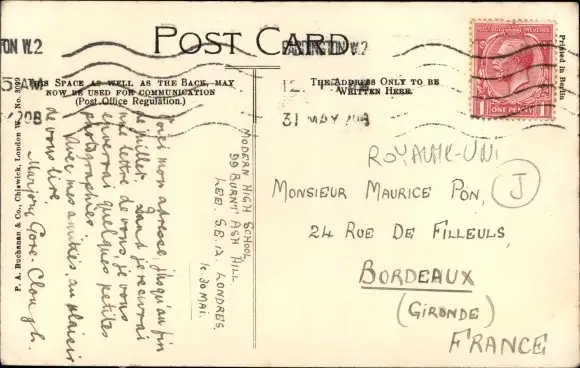 POST CARD
THIS SPACE AS WELL AS THE BACK, MAY
NOW BE USED FOR COMMUNICATION
(Post Office Regulation.)
THE ADDRESS ONLY TO BE
WRITTEN HERE.
TON W.2
W.2
5 AM
20B
12
31 MAY
POSTAGE REVENUE
1 ONE PENNY 1
Printed in Berlin
P. V. Buchanan & Co., Chiswick, London W. No.
MODERN HIGH SCHOOL
99 BURNT ASH HILL
LEE. S.E.12. LONDRES.
le 30 MAI.
Voici mon adresse, jusqu'au fin
de juillet. Quand je recevrai
une lettre de vous, je vous
enverrai quelques petites
photographies.
Avec mes amitiés, au plaisir
de vous lire,
Marjorie Gore-Clough.
ROYAUME-UNI
J
MONSIEUR MAURICE PON,
24 RUE DE FILLEULS,
BORDEAUX
(GIRONDE)
FRANCE